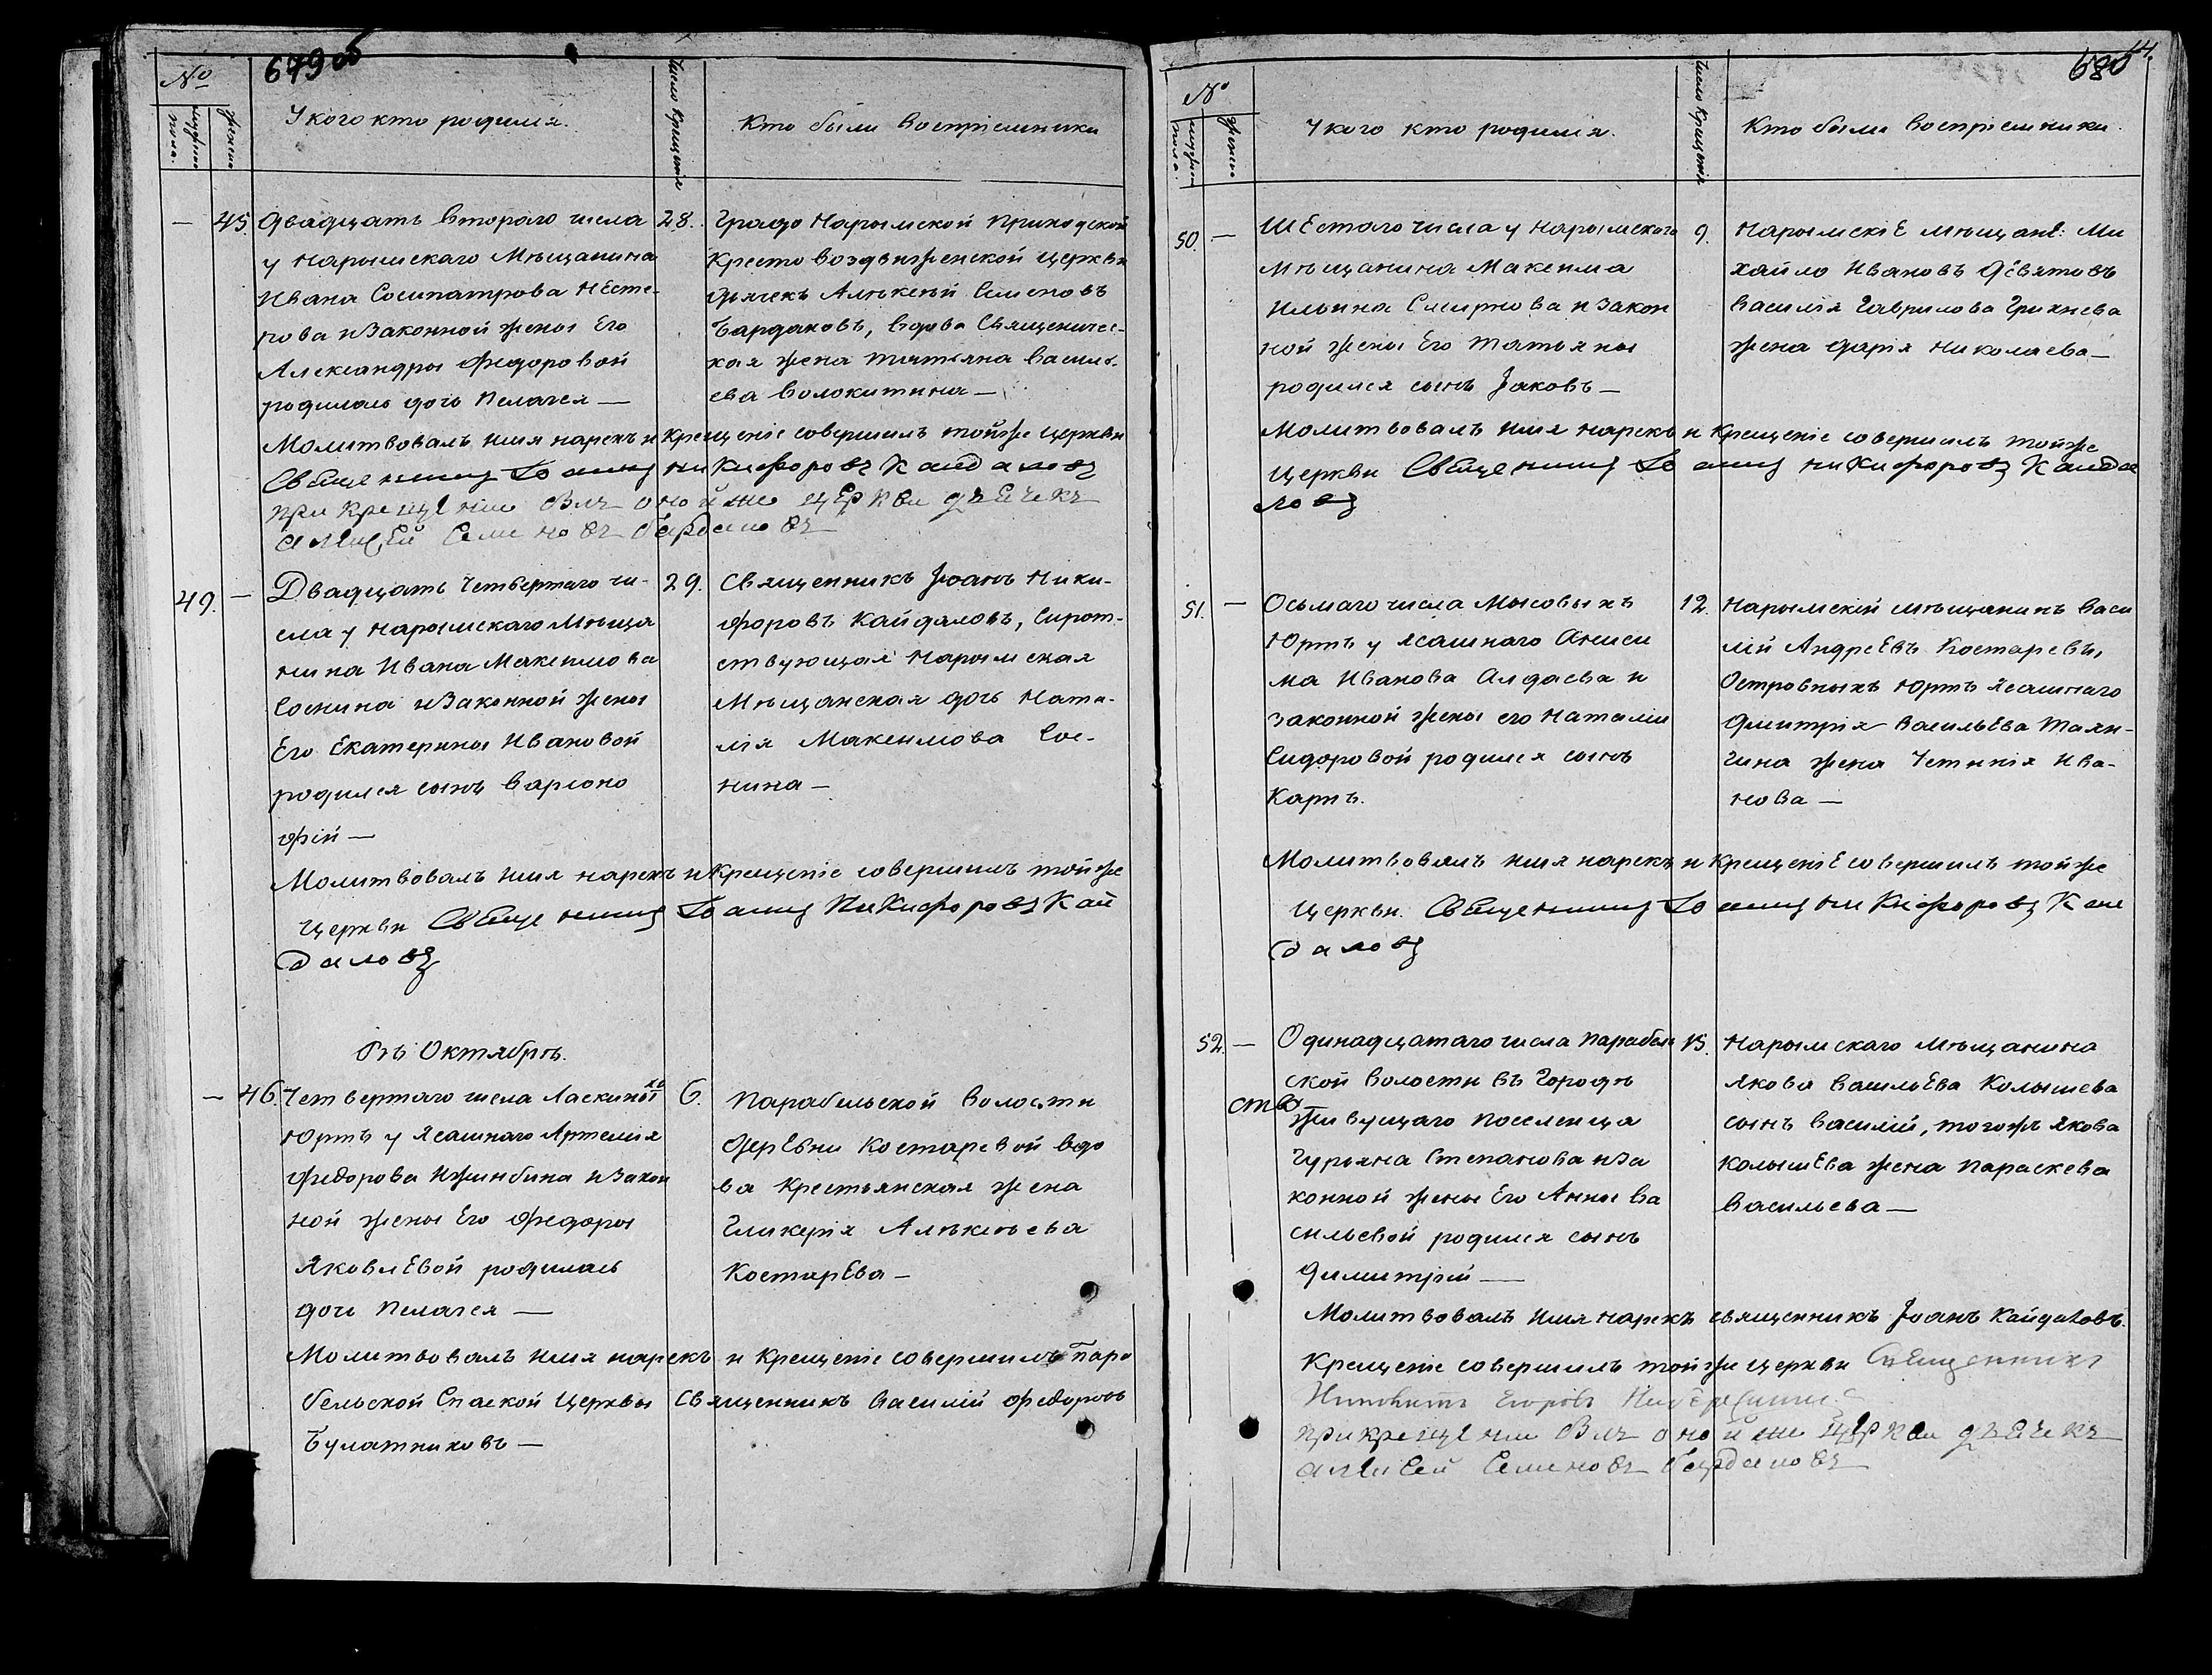 679 об
№
мужеска пола.
женска
У кого кто родился.
Число крещенія
Кто были восприемники
— 45. Двадцать втораго числа
у Нарымскаго Мѣщанина
Ивана Сосипатрова Несте-
рова и Законной жены Его
Александры Федоровой
родилась дочь Пелагея —
28. Градо Нарымской Приходской
Кресто Воздвиженской церкви
дьячекъ Алѣксѣй Семеновъ
Бардаковъ, вдова Священичес-
кая жена Татьяна Василь-
ева Волокитина —
Молитвовалъ имя нарекъ и крещеніе совершилъ тойже церкви
Священникъ Іоаннъ Никифоровъ Кайдаловъ
при крещении былъ оной же церкви дьячекъ
Алексей Семеновъ Бардаковъ
49. — Двадцать четвертаго чи-
сла у Нарымскаго Мѣща
нина Ивана Максимова
Соснина и Законной жены
Его Екатерины Ивановой
родился сынъ Варлоно
фій —
29. Священникъ Іоанъ Ники-
форовъ Кайдаловъ, Сирот-
ствующая Нарымская
Мѣщанская дочь Ната-
лія Максимова Сос-
нина —
Молитвовалъ имя нарекъ и крещеніе совершилъ тойже
церкви Священникъ Іоаннъ Никифоровъ Кай
даловъ
Въ Октябрѣ.
— 46. Четвертаго числа Ласкиныхъ
Юртъ у Ясашнаго Артемія
Федорова Ижинбина и Закон
ной жены Его Федоры
Яковлевой родилась
дочь Пелагея —
6. Парабельской волости
деревни Костаревой вдо
ва крестьянская жена
Гликерія Алѣксѣева
Костарева —
Молитвовалъ имя нарекъ и крещеніе совершилъ Пара
бельской Спаской Церквы Священникъ Василий Федоровъ
Булатниковъ —
680
№
мужеска пола.
женска
У кого кто родился.
Число крещенія
Кто были восприемники.
50. — Шестаго числа у Нарымскаго
Мѣщанина Максима
Ильина Смирнова и Закон
ной жены Его Татьяны
родился сынъ Іаковъ —
9. Нарымскіе мѣщане: Ми
хайло Ивановъ Девятовъ
Василія Гаврилова Грязнева
жена Дарія Николаева —
Молитвовалъ имя нарекъ и крещеніе совершилъ тойже
церкви Священникъ Іоаннъ Никифоровъ Кайда
ловъ
51. — Осьмаго числа Мысовыхъ
Юртъ у Ясашнаго Аниси
ма Иванова Алдаева и
законной жены его Наталии
Сидоровой родился сынъ
Карпъ.
12. Нарымскій мѣщанинъ Васи
лій Андреевъ Костаревъ,
Островныхъ Юртъ Ясашнаго
Дмитрія Васильева Таян-
гина жена Устинія Ива-
нова —
Молитвовалъ имя нарекъ и крещеніе совершилъ тойже
церкви. Священникъ Іоаннъ Никифоровъ Кай
даловъ
52. — Одинадцатаго числа Парабель
ской волости въ Городѣ
жи вущаго Поселенца
Гурьяна Степанова и За
конной жены Его Анны Ва
сильевой родился сынъ
Димитрій —
15. Нарымскаго мѣщанина
Якова Васильева Колышева
сынъ Василий, тогожъ Якова
Колышева жена Параскева
Васильева —
Молитвовалъ имя нарекъ священникъ Іоанъ Кайдаловъ.
Крещеніе совершилъ тойже церкви Священникъ
Егоровъ
при крещении былъ оной же церкви дьячекъ
Алексей Семеновъ Бардаковъ